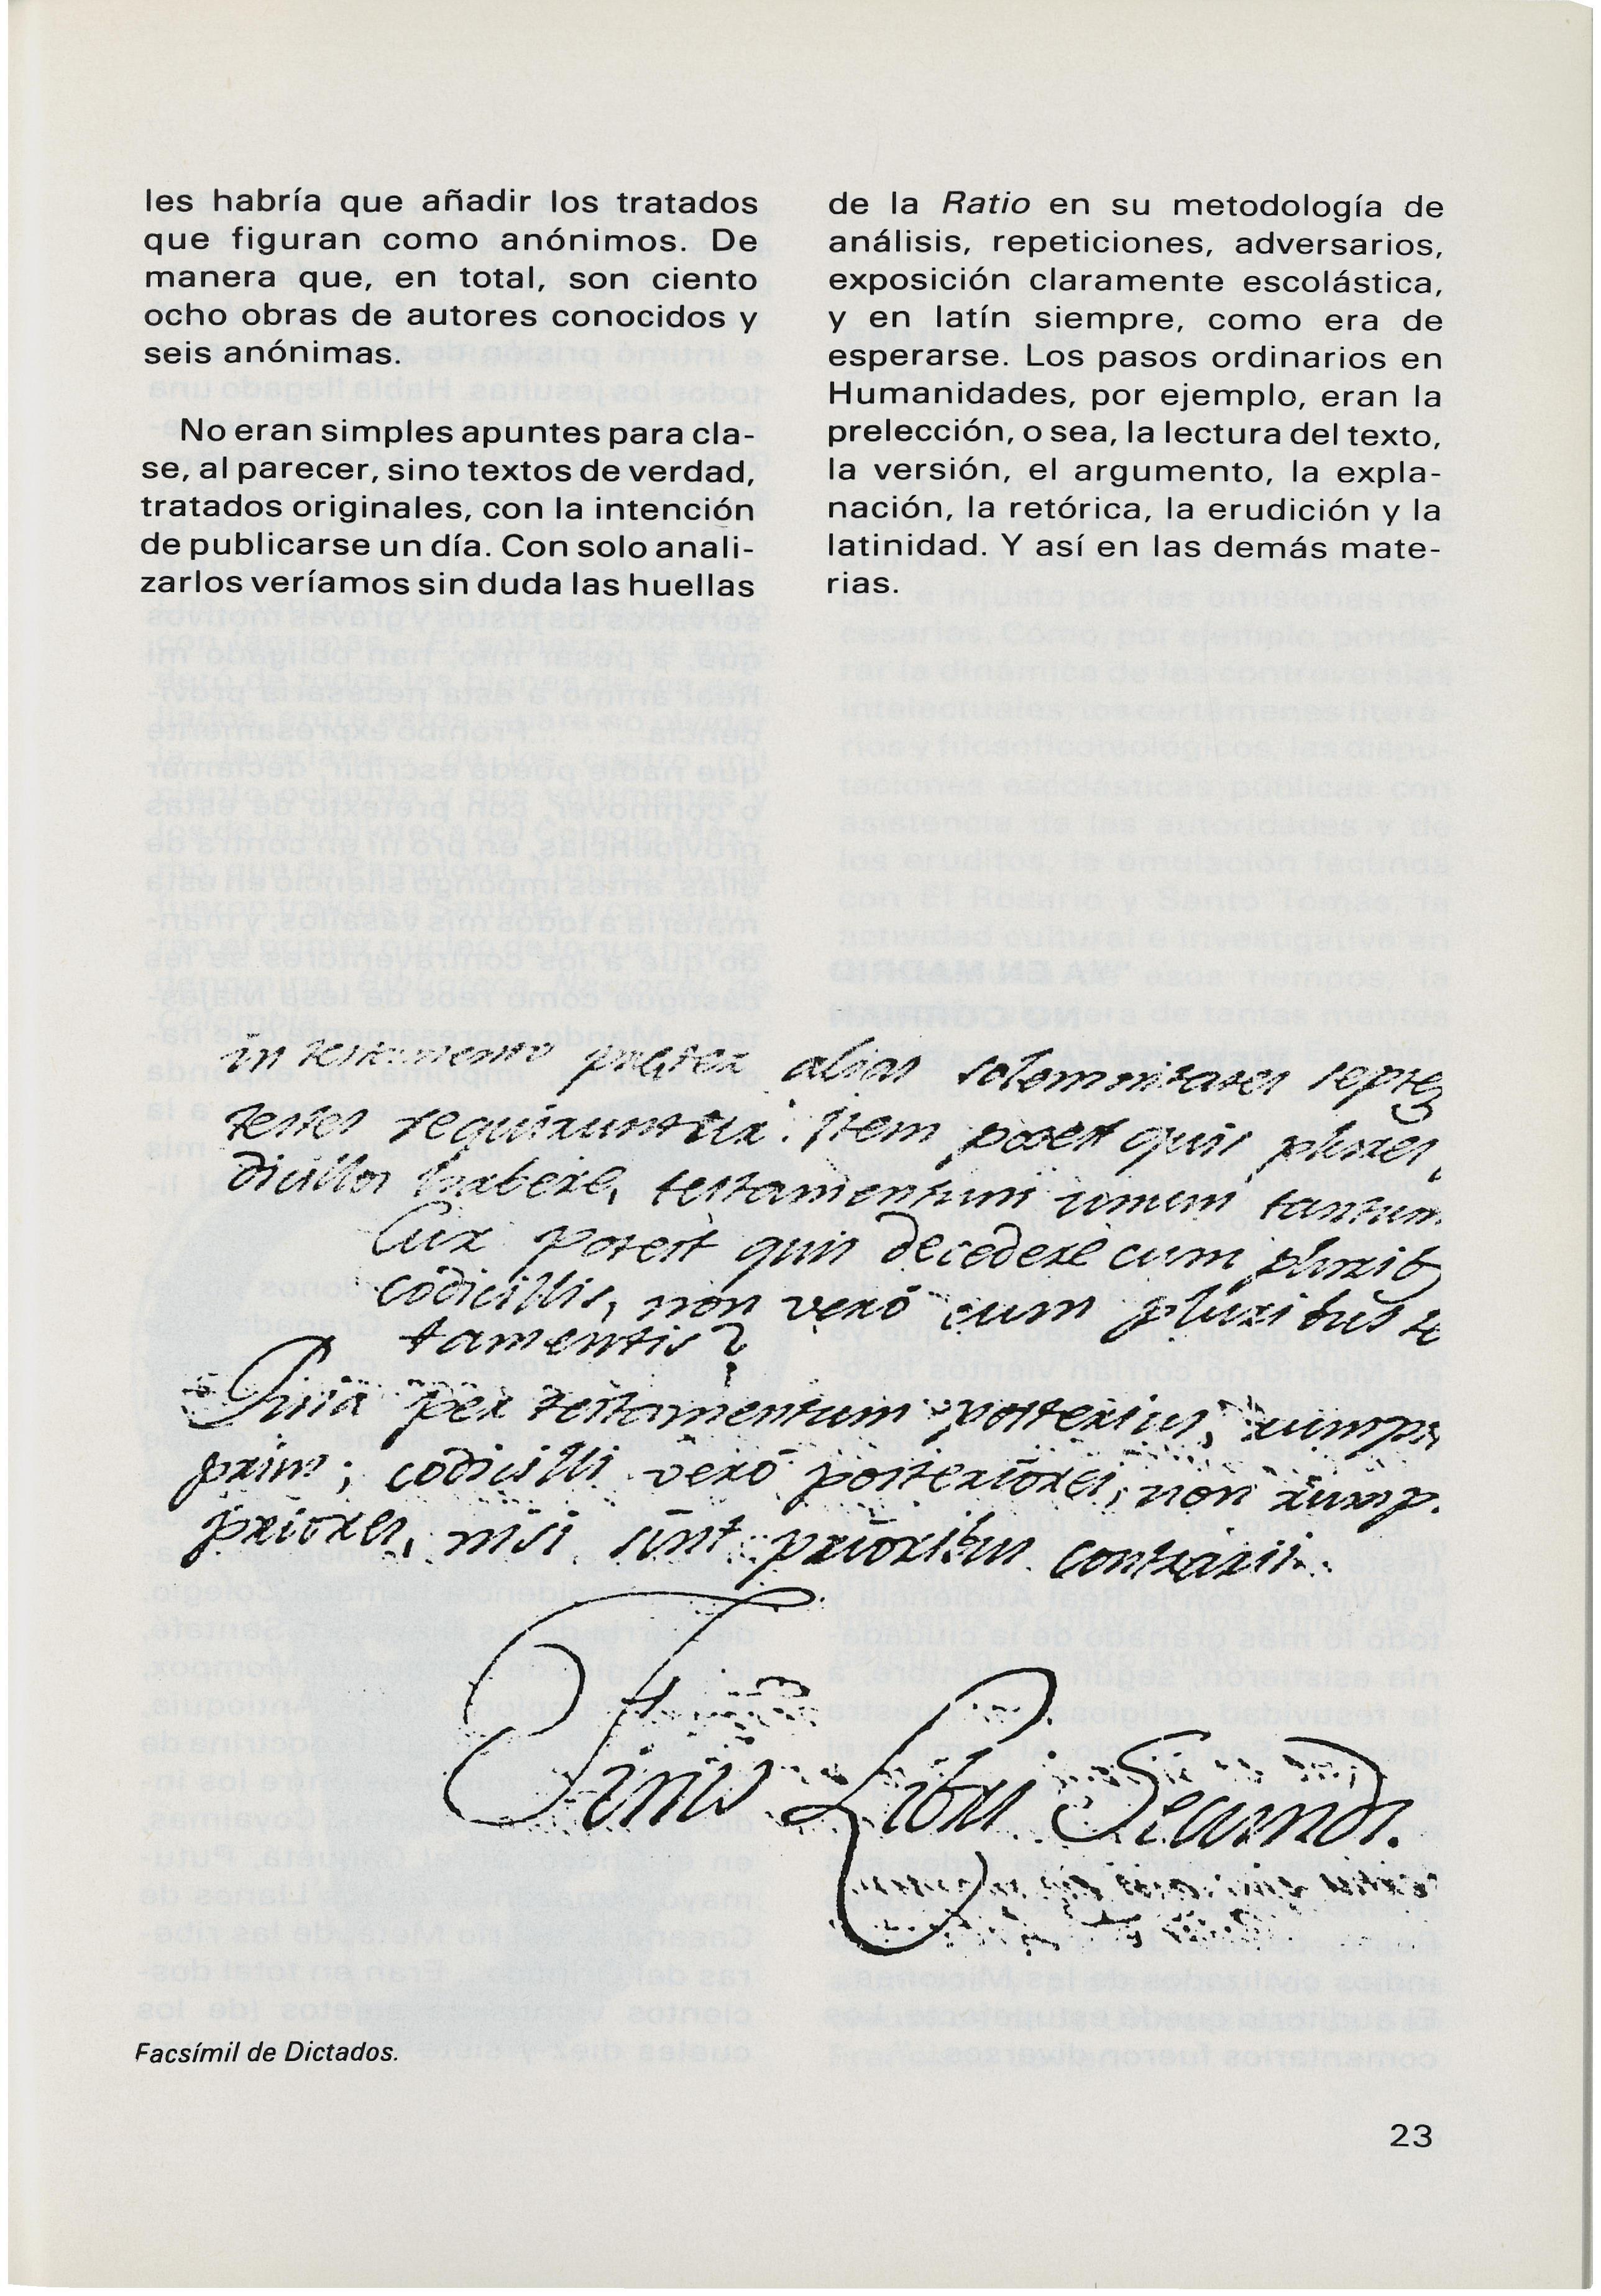 les habría que añadir los tratados
que figuran como anónimos. De
manera que, en total, son ciento
ocho obras de autores conocidos y
seis anónimas.
No eran simples apuntes para cla-
se, al parecer, sino textos de verdad,
tratados originales, con la intención
de publicarse un día. Con solo anali-
zarlos veríamos sin duda las huellas
de la Ratio en su metodología de
análisis, repeticiones, adversarios,
exposición claramente escolástica,
y en latín siempre, como era de
esperarse. Los pasos ordinarios en
Humanidades, por ejemplo, eran la
prelección, o sea, la lectura del texto,
la versión, el argumento, la expla-
nación, la retórica, la erudición y la
latinidad. Y así en las demás mate-
rias.
in testamento præter alias solemnitates
testes requiruntur. Item potest quis plures
dicillos habere, testamentum unum tantum
Cur potest quis decedere cum plurib
codicillis, non verò cum pluribus te
tamentis?
Quia per testamentum posterius,
prius; codicilli verò posteriores, non rump.
priores, nisi sint prioribus contrarii.
Finis Libri Secundi.
Facsímil de Dictados.
23